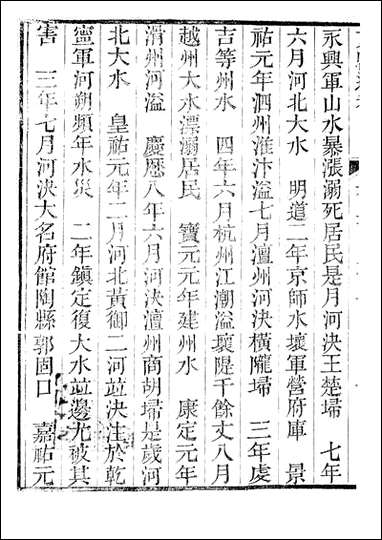 永興軍山水暴漲溺死居民是月河決王楚埽　七年
六月河北大水　明道二年京師水壞軍營府庫　景
祐元年泗州淮汴溢七月澶州河決橫隴埽　三年虔
吉等州水　四年六月杭州江潮溢壞隄千餘丈八月
越州大水漂溺居民　寶元元年建州水　康定元年
滑州河溢　慶歷八年六月河決澶州商胡埽是歲河
北大水　皇祐元年二月河北黃御二河竝決注於乾
寧軍河朔頻年水災　二年鎮定復大水竝邊尤被其
害　三年七月河決大名府館陶縣郭固口　嘉祐元